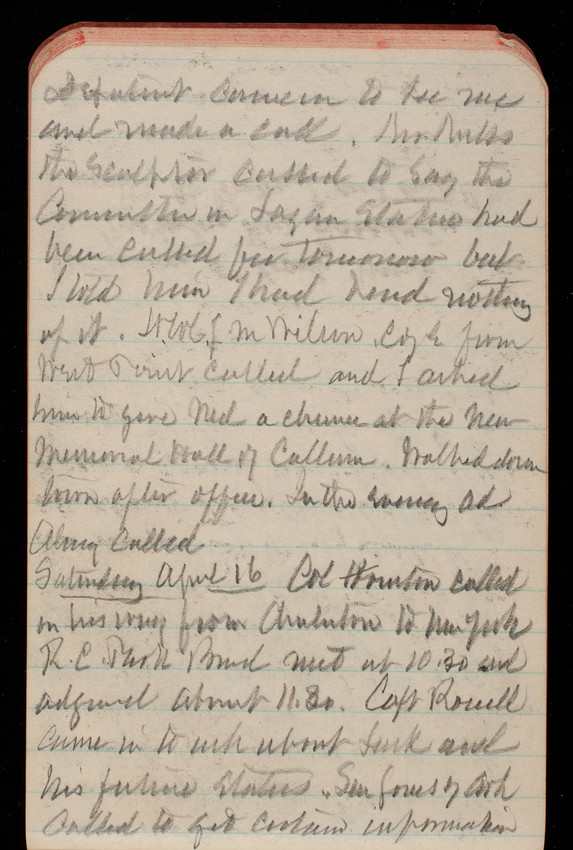 came in to see me
and made a call. Mr Rohl
the Sculptor called to say the
Committee on Logan Statue had
been called for tomorrow but
I told him I had heard nothing
of it. Lt Col J M Wilson C of E from
West Point called and I asked
him to give Ned a chance at the new
Memorial Hall of Cullum. Walked down
town after office. In the evening
called
Saturday April 16 Col called
on his way from Charleston to New York
R. C. Park Board met at 10.30 and
adjourned about 11.30. Capt Rowell
came in to ask about and
his future status. Sen Jones of Ark
called to get certain information